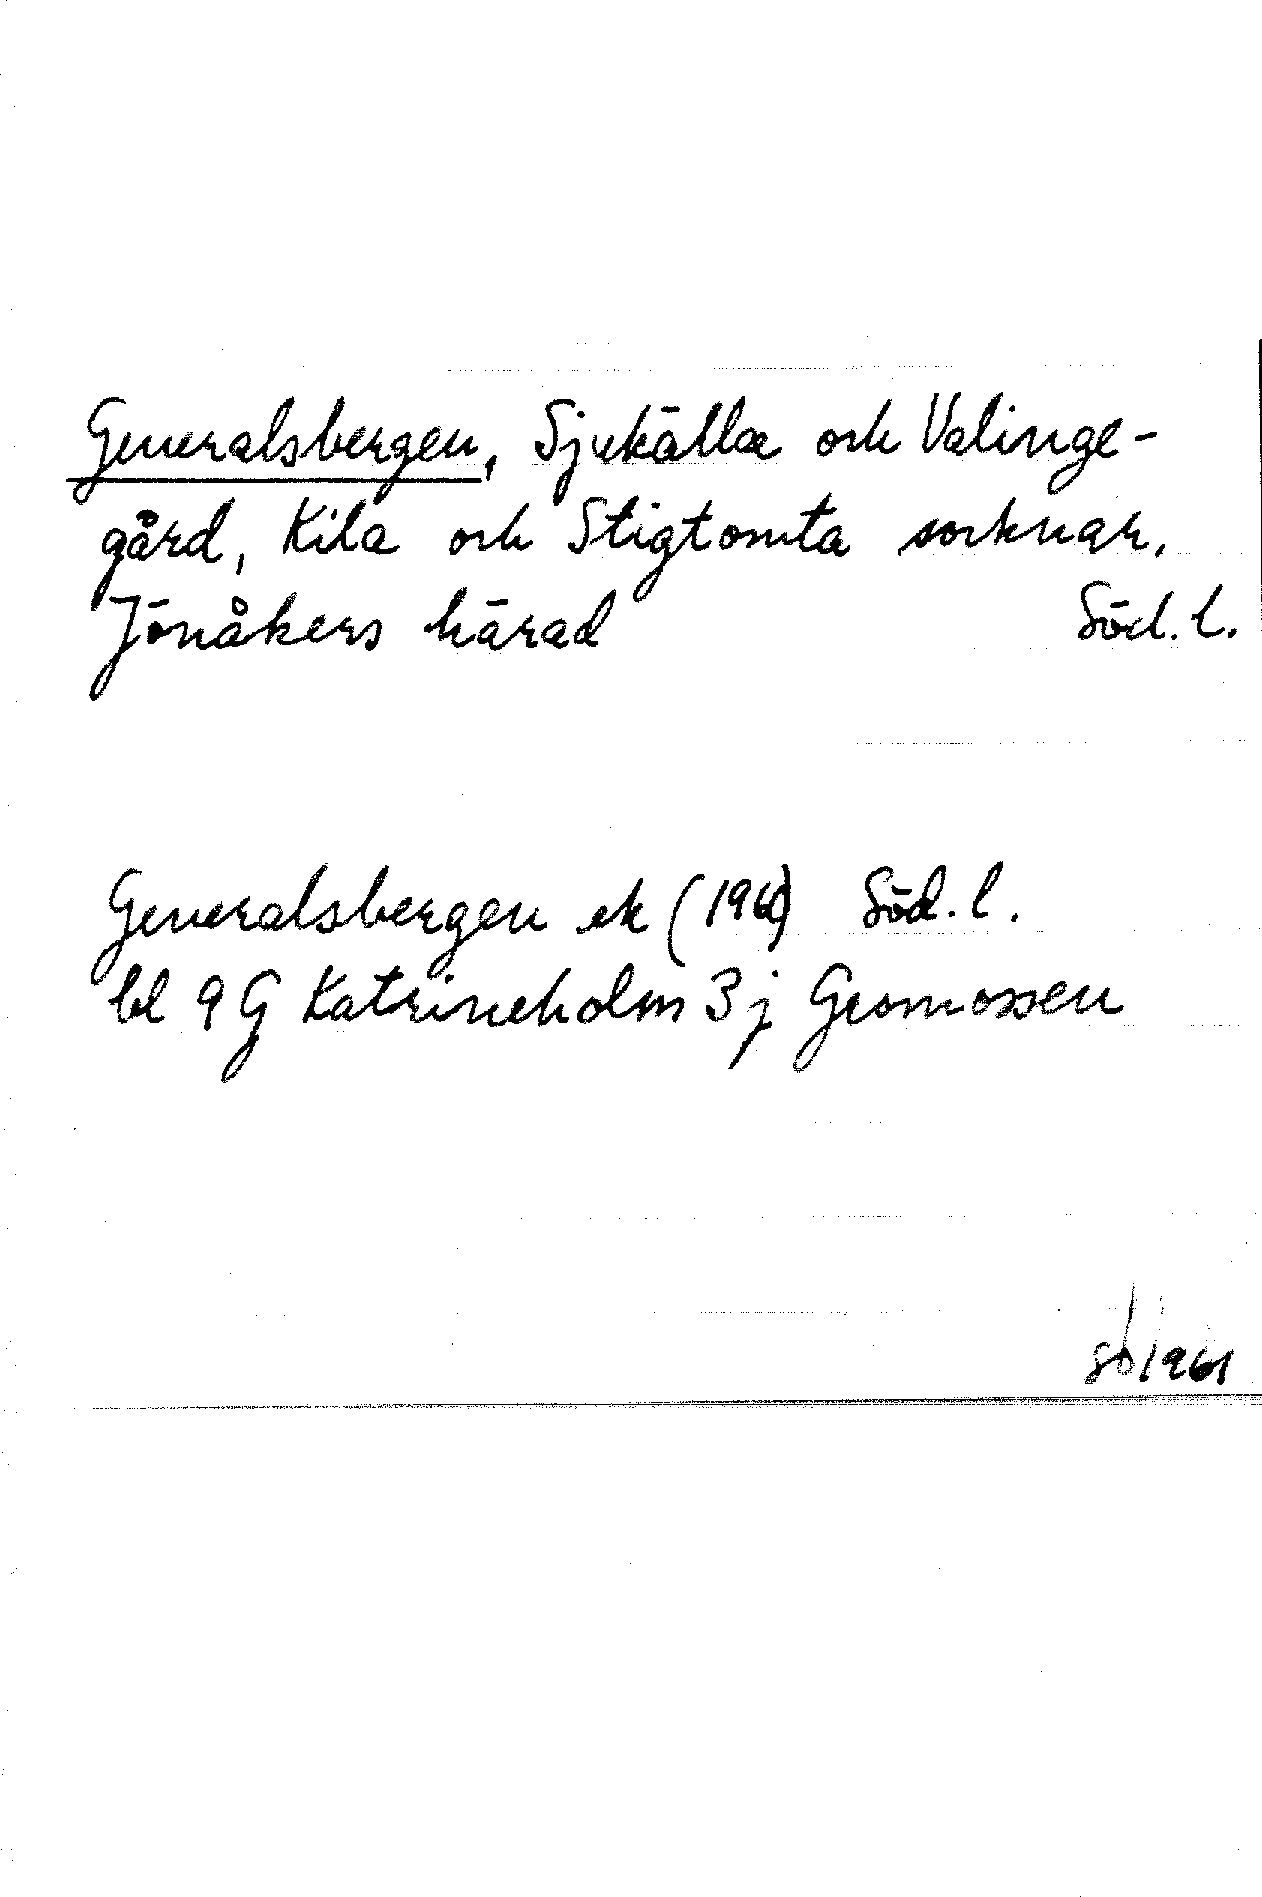 Generalsbergen, Sjukälla och Valinge-
gård, Kila och Stigtomta socknar,
Jönåkers härad Söd. l.
Generalsbergen ek (1961) Söd. l.
bl 9G Katrineholm 3j Gromossen
SO 1961